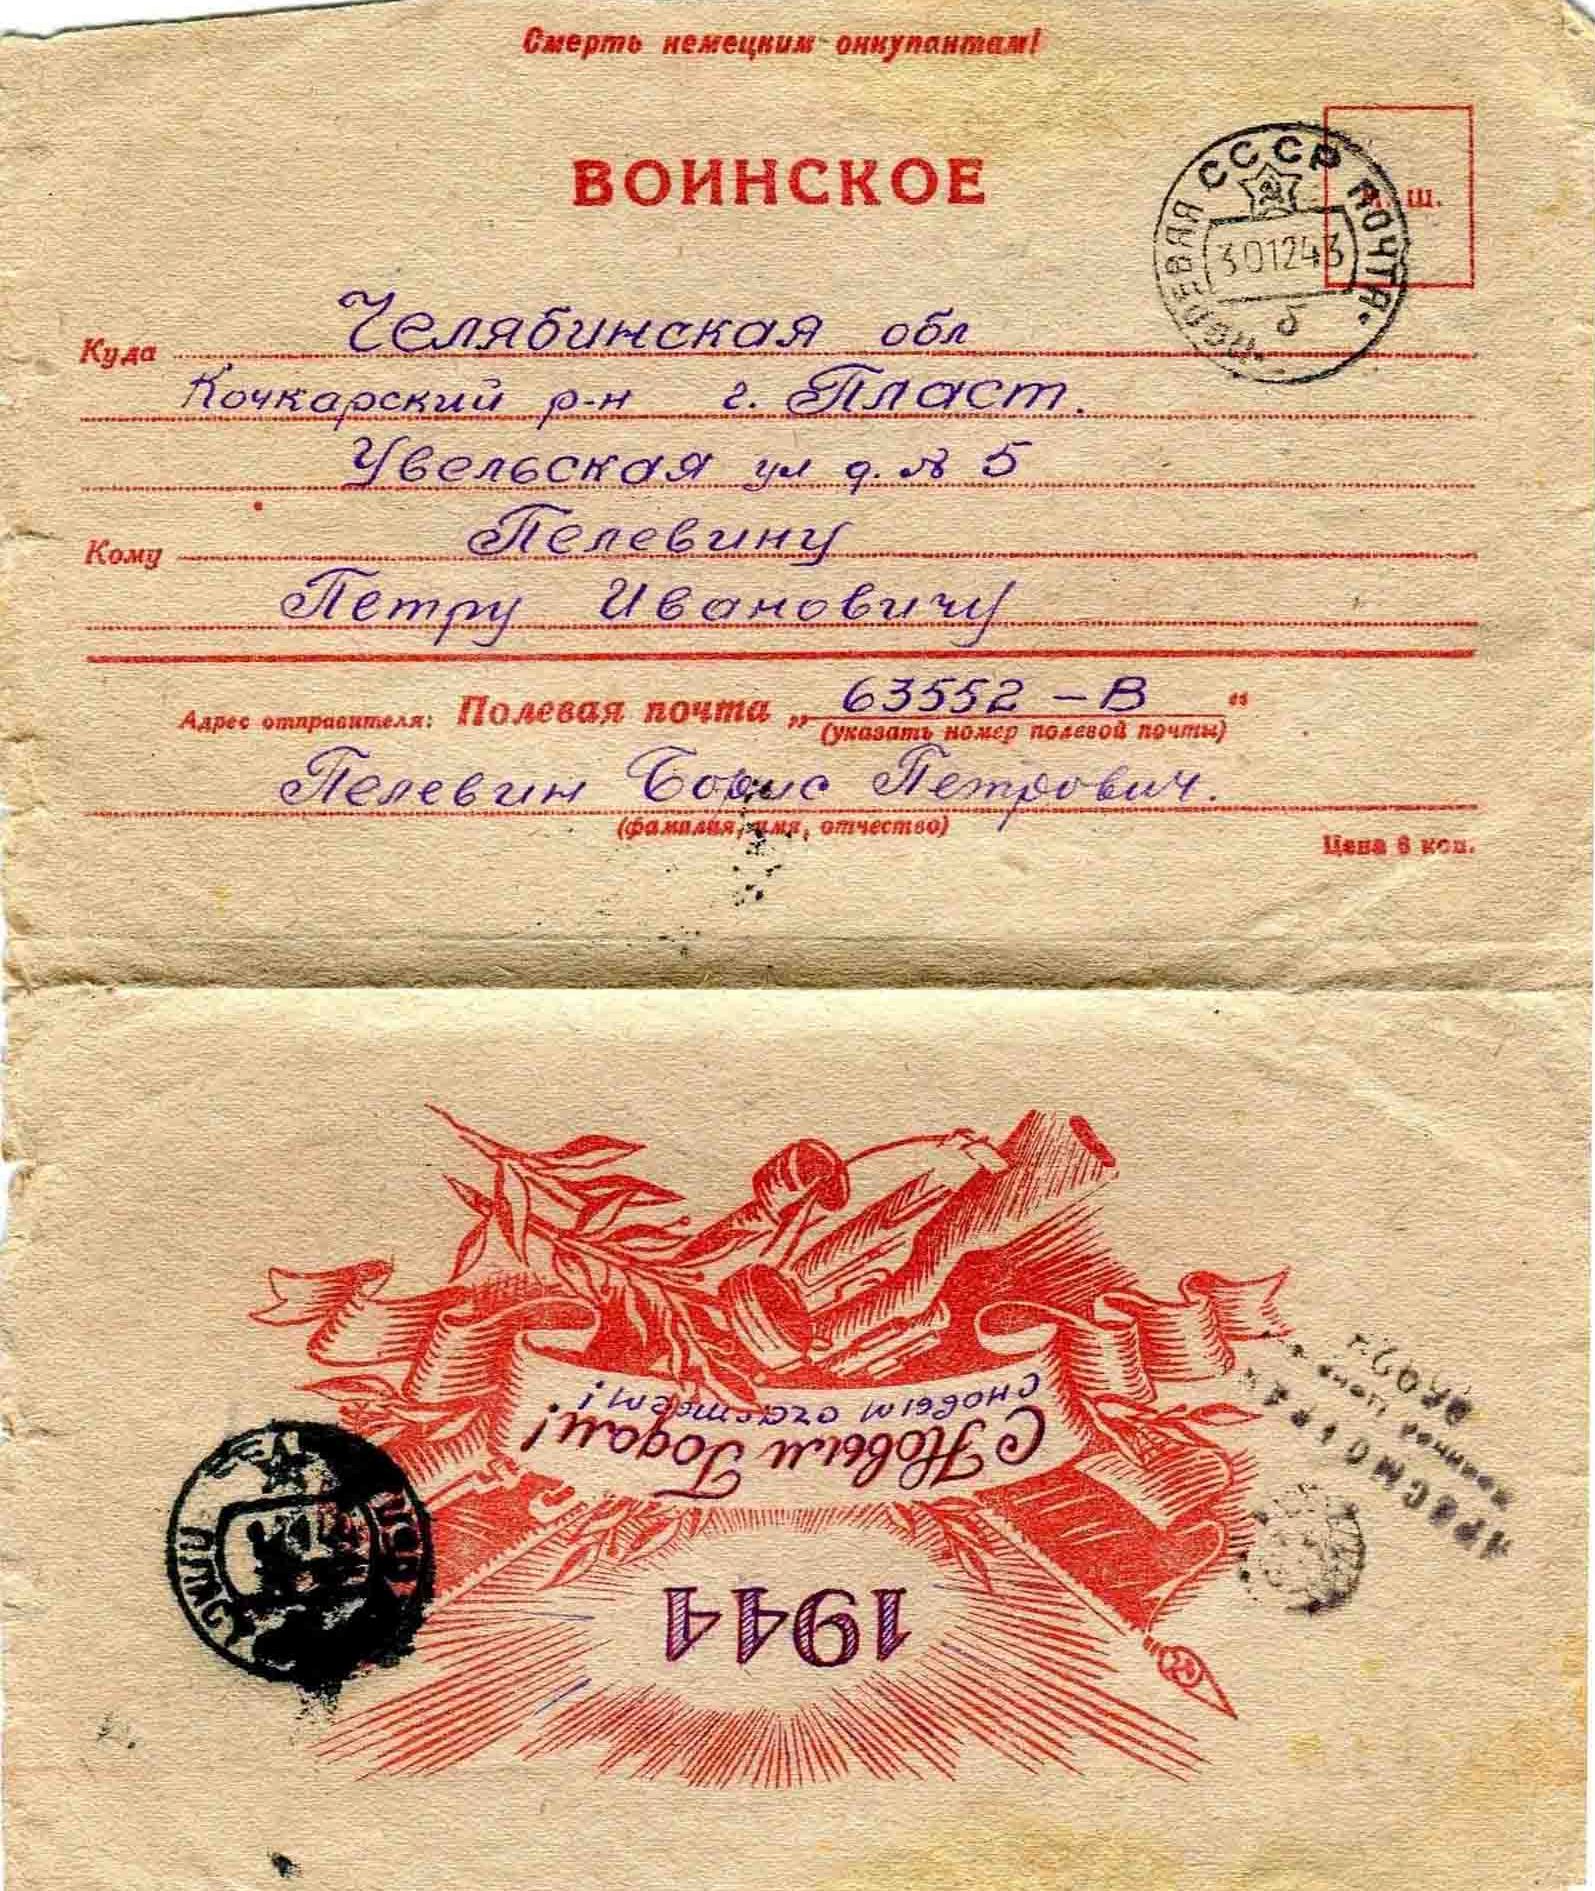 Смерть немецким оккупантам!
ВОИНСКОЕ
СССР ПОЧТА ПОЛЕВАЯ
301243
б
Ш.
Куда Челябинская обл
Кочкарский р-н г. Пласт.
Увельская ул д. № 5
Кому Пелевину
Петру Ивановичу
Адрес отправителя: Полевая почта „63552 – В“
(указать номер полевой почты)
Пелевин Борис Петрович.
(фамилия, имя, отчество)
Цена 6 коп.
1944
С Новым Годом!
С новым счастьем!
ПЛАСТ